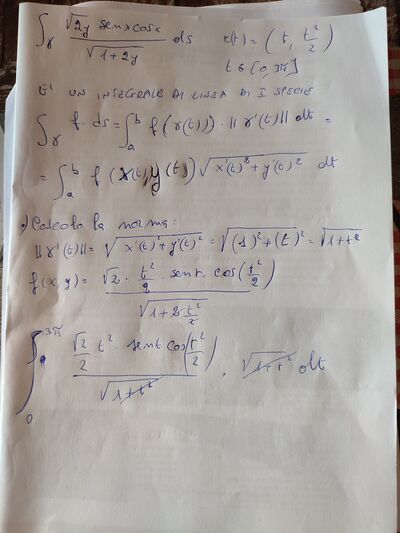 ∫_γ (√2y senx cosx)/√(1+2y) ds r(t) = (t, t²/2)
t ∈ [0, 3π]
E' UN INTEGRALE DI LINEA DI I SPECIE
∫_γ f·ds = ∫_a^b f(r(t))·||r'(t)|| dt =
= ∫_a^b f(x(t), y(t)) √(x'(t)²+y'(t)²) dt
•) Calcolo la norma:
||r'(t)|| = √(x'(t)²+y'(t)²) = √((1)²+(t)²) = √(1+t²)
f(x,y) = (√2 · t²/2 · sent · cos(t²/2))/√(1+2·t²/2)
∫_0^3π (√2/2 t² · sent cos(t²/2))/√(1+t²) · √(1+t²) dt